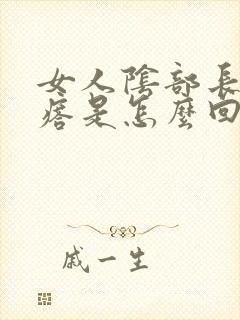 女人陰部長
瘩是怎麼回
戚一生